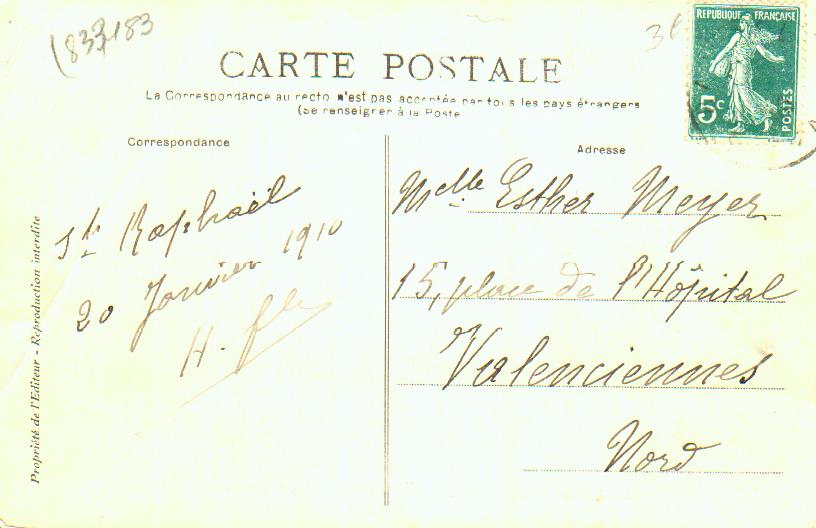 (833183
3
RÉPUBLIQUE FRANÇAISE
5c
POSTES
CARTE POSTALE
La Correspondance au recto n'est pas acceptée par tous les pays étrangers
(Se renseigner à la Poste
Correspondance
Adresse
St Raphaël
20 Janvier 1910
H.
Melle Esther Meyer
15, place de l'Hôpital
Valenciennes
Nord
Propriété de l'Editeur - Reproduction interdite